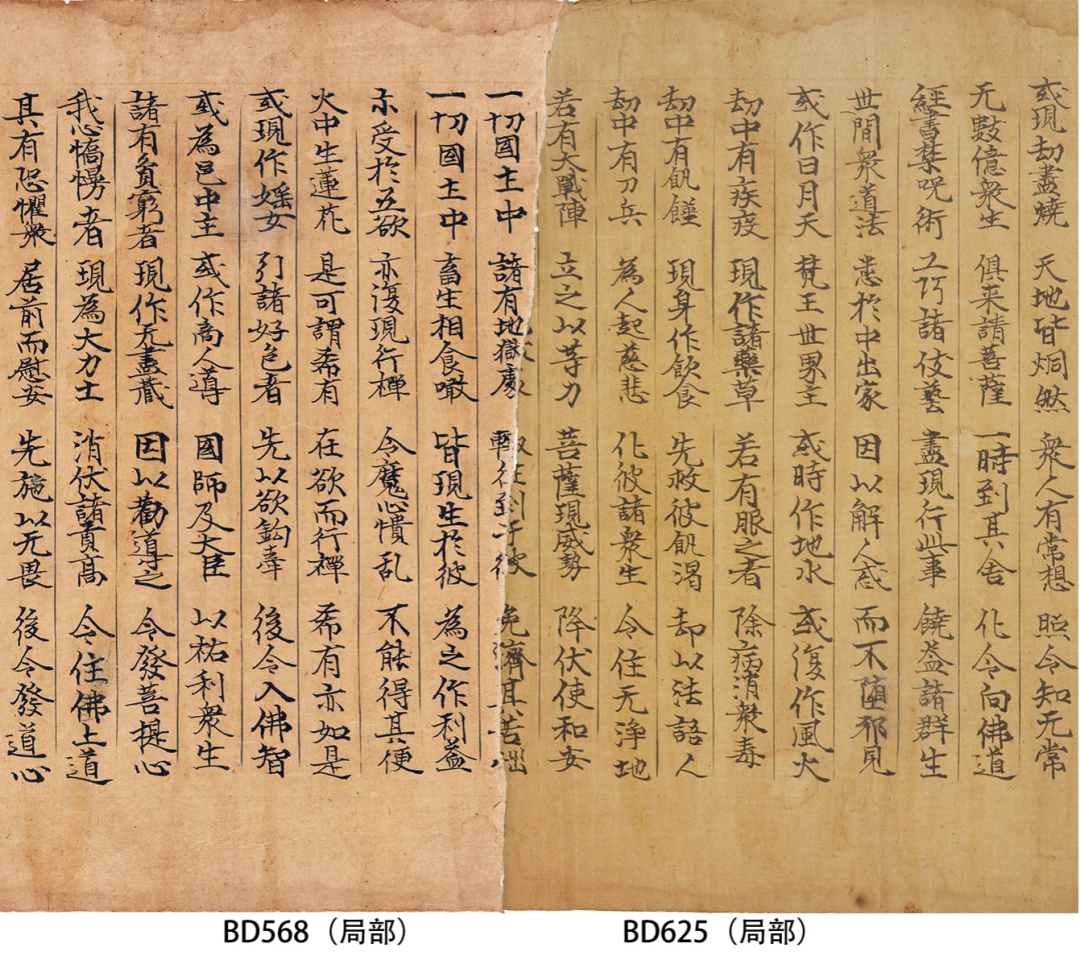 或現劫盡燒 天地皆烔然 衆人有常想 照令知无常
无數億衆生 俱来請菩薩 一時到其舍 化令向佛道
經書禁呪術 工巧諸伎藝 盡現行此事 饒益諸群生
世間衆道法 悉於中出家 因以解人惑 而不堕邪見
或作日月天 梵王世界主 或時作地水 或復作風火
劫中有疾疫 現作諸藥草 若有服之者 除病消衆毒
劫中有飢饉 現身作飲食 先救彼飢渴 却以法語人
劫中有刀兵 為人起慈悲 化彼諸衆生 令住无淨地
若有大戰陣 立之以等力 菩薩現威勢 降伏使和安
一切國土中 諸有地獄處 輙往到于彼 免濟其苦惱
一切國土中 畜生相食噉 皆現生於彼 為之作利益
示受於五欲 亦復現行禪 令魔心憒乱 不能得其便
火中生蓮花 是可謂希有 在欲而行禪 希有亦如是
或現作婬女 引諸好色者 先以欲鈎牽 後令入佛智
或為邑中主 或作商人導 國師及大臣 以祐利衆生
諸有貧窮者 現作无盡藏 因以勸導之 令發菩提心
我心憍慢者 現為大力士 消伏諸貢高 令住佛上道
其有恐懼衆 居前而慰安 先施以无畏 後令發道心
BD568（局部）
BD625（局部）